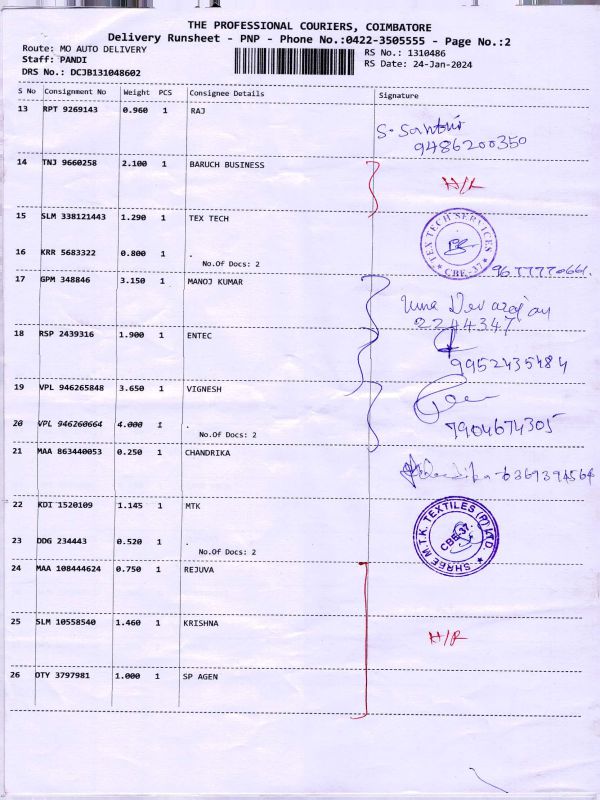 THE PROFESSIONAL COURIERS, COIMBATORE
Delivery Runsheet - PNP - Phone No.:0422-3505555 - Page No.:2
Route: MO AUTO DELIVERY
RS No.: 1310486
Staff: PANDI
RS Date: 24-Jan-2024
DRS No.: DCJB131048602
S No Consignment No Weight PCS Consignee Details Signature
13 RPT 9269143 0.960 1 RAJ
9486200350
14 TNJ 9660258 2.100 1 BARUCH BUSINESS
15 SLM 338121443 1.290 1 TEX TECH
TEX TECH SERVICES
CBE-37
16 KRR 5683322 0.800 1 .
No.Of Docs: 2
17 GPM 348846 3.150 1 MANOJ KUMAR
2244347
18 RSP 2439316 1.900 1 ENTEC
9952435484
19 VPL 946265848 3.650 1 VIGNESH
7904674305
20 VPL 946260664 4.000 1 .
No.Of Docs: 2
21 MAA 863440053 0.250 1 CHANDRIKA
22 KDI 1520109 1.145 1 MTK
SHREE M.T.K. TEXTILES (P) LTD.
CBE-37.
23 DDG 234443 0.520 1 .
No.Of Docs: 2
24 MAA 108444624 0.750 1 REJUVA
25 SLM 10558540 1.460 1 KRISHNA
26 OTY 3797981 1.000 1 SP AGEN